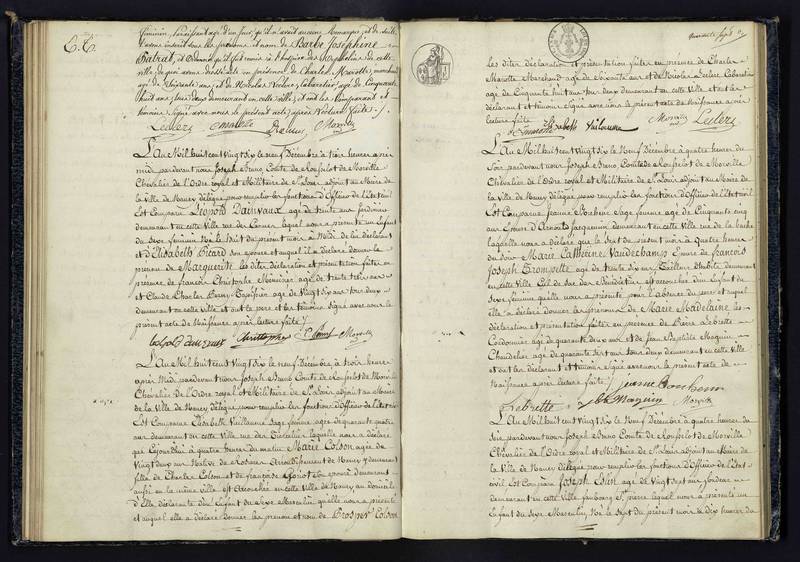 C.C.
féminin, paraissant âgé d'un jour, qu'il n'avait aucune remarque, et de suite
l'avons inscrit sous les prénoms et nom de Barbe Joséphine
Gabrat, et ordonné qu'il fut remis à l'hospice des orphelins de cette
ville, de quoi avons dressé acte en présence de Charles Marotte, marchand
âgé de soixante ans, et de Nicolas Leclerc, Cabaretier, âgé de Cinquante
huit ans, tous deux demeurant en cette ville; et ont les comparant et
témoins signé avec nous le présent acte, après lecture faite /.
Leclerc Marotte Morvill
L'An Mil huit cent Vingt Six le neuf Décembre à trois heures après
midi, pardevant nous Joseph Bruno Comte de Rousselot de Morville
Chevalier de l'Ordre royal et Militaire de St Louis adjoint au Maire de
la Ville de Nancy délégué pour remplir les fonctions d'Officier de l'Etat civil
Est Comparu Léopold Dainvaux âgé de trente ans jardinier
demeurant en cette Ville rue des lequel nous a présenté un Enfant
du Sexe féminin Né le huit du présent mois à Midi, de lui déclarant
et d'Elisabeth Picard son épouse et auquel il a déclaré donner le
prénom de Marguerite les dites déclaration et présentation faites en
présence de françois Christophe Menuisier âgé de trente trois ans
et Claude Charles Tapissier âgé de Vingt Six ans tous deux
demeurant en cette Ville et ont le père et les témoins signé avec nous le
présent acte de Naissance après lecture faite /
Christophe Morville
L'An Mil huit cent Vingt Six le neuf Décembre, à trois heures
après Midi, pardevant nous Joseph Bruno Comte de Rousselot de Morville
Chevalier de l'Ordre royal et Militaire de St Louis adjoint au Maire
de la Ville de Nancy délégué pour remplir les fonctions d'Officier de l'Etat civil
Est Comparue Elisabeth Vuillaume Sage femme âgée de quarante quatre
ans demeurant en cette Ville rue des laquelle nous a déclaré
que Cejourd'hui à quatre heures du matin Marie Colson âgée de
Vingt deux ans Native de Rosières Arrondissement de Nancy y demeurant
fille de Charles Colson et de françoise Goriot Son épouse demeurant
aussi en la même Ville est accouchée en cette Ville de Nancy, au domicile
d'Elle déclarante d'un Enfant du Sexe Masculin qu'elle nous a présenté
et auquel elle a déclaré donner les prénom et nom de Prosper Colson
quarante sept
les dites déclaration et présentation faites en présence de Charles
Marotte Marchand âgé de Soixante ans et de Nicolas Leclerc Cabaretier
âgé de Cinquante huit ans tous deux demeurant en cette Ville et ont les
déclarant et témoins signé avec nous le présent acte de Naissance après
lecture faite /
Marotte Elisabeth Vuillaume Morville Leclerc
L'An Mil huit cent vingt Six le Neuf Décembre à quatre heures du
Soir pardevant nous Joseph Bruno Comte de Rousselot de Morville
Chevalier de l'Ordre royal et Militaire de St Louis adjoint au Maire de
la Ville de Nancy délégué pour remplir les fonctions d'Officier de l'Etat civil
Est Comparue Jeanne Bonherm Sage femme âgée de Cinquante cinq
ans Epouse d'Arnould Jacquemin demeurant en cette Ville rue de la
laquelle nous a déclaré que le huit du présent mois à quatre heures
du soir Marie Catherine Vaudechamps Epouse de françois
Joseph Trompette âgé de trente six ans Tailleur d'habits demeurant
en cette Ville Cul de Sac des Bénédictins est accouchée d'un Enfant du
Sexe féminin qu'elle nous a présenté pour l'absence du père et auquel
elle a déclaré donner les prénoms de Marie Madelaine les
déclaration et présentation faites en présence de Pierre Lebrette
Cordonnier âgé de quarante deux ans et de Jean Baptiste Marquin
Chandelier âgé de quarante sept ans tous deux demeurant en cette Ville
et ont les déclarant et témoins signé avec nous le présent acte de
Naissance après lecture faite / Jeanne Bonherm
Lebrette Morville
L'An Mil huit cent Vingt Six le Neuf Décembre à quatre heures du
soir pardevant nous Joseph Bruno Comte de Rousselot de Morville
Chevalier de l'Ordre royal et Militaire de St Louis adjoint au Maire de
la Ville de Nancy délégué pour remplir les fonctions d'Officier de l'Etat
civil Est Comparu Joseph âgé de Vingt sept ans
demeurant en cette Ville faubourg St pierre lequel nous a présenté un
Enfant du Sexe Masculin, Né le Sept du présent mois à dix heures du